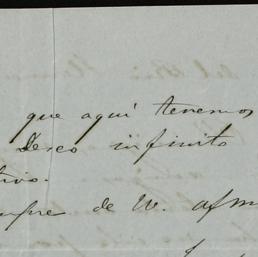 que aquí tenemos
Deseo infinito
tivo.
mpre de W. afm